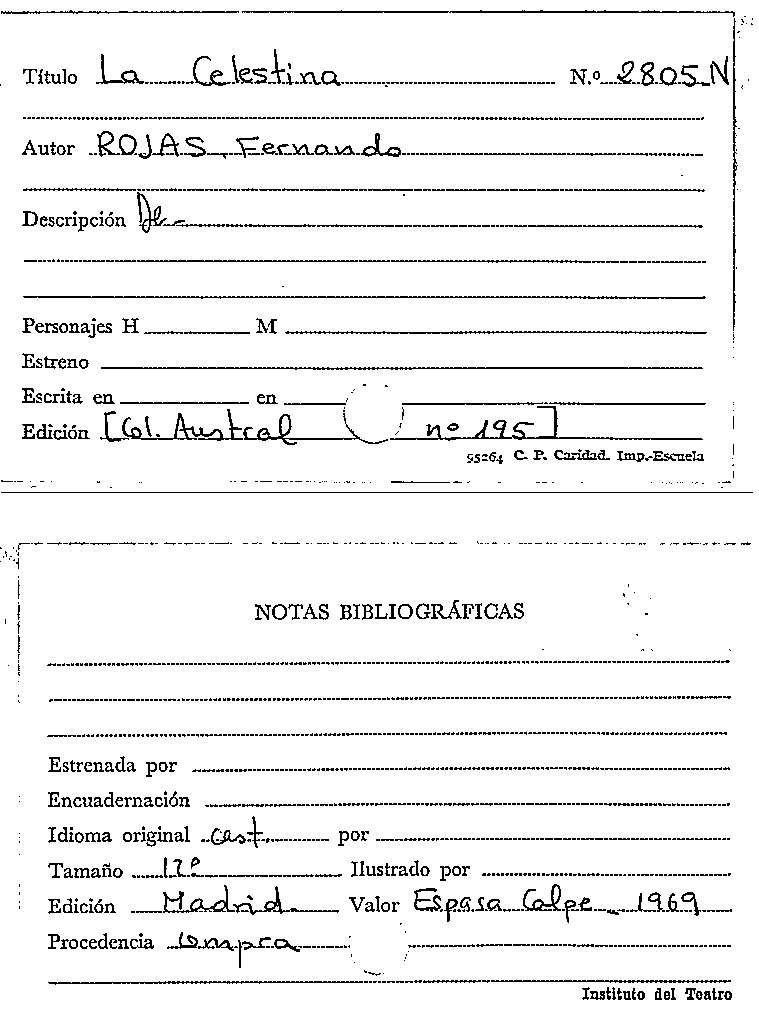 Título La Celestina N.º 2805-N
Autor ROJAS, Fernando
Descripción
Personajes H M
Estreno
Escrita en en
Edición [Col. Austral nº 195]
95264 C. P. Caridad. Imp.-Escuela
NOTAS BIBLIOGRÁFICAS
Estrenada por
Encuadernación
Idioma original cast. por
Tamaño 12º Ilustrado por
Edición Madrid Valor Espasa Calpe - 1969
Procedencia compra
Instituto del Teatro